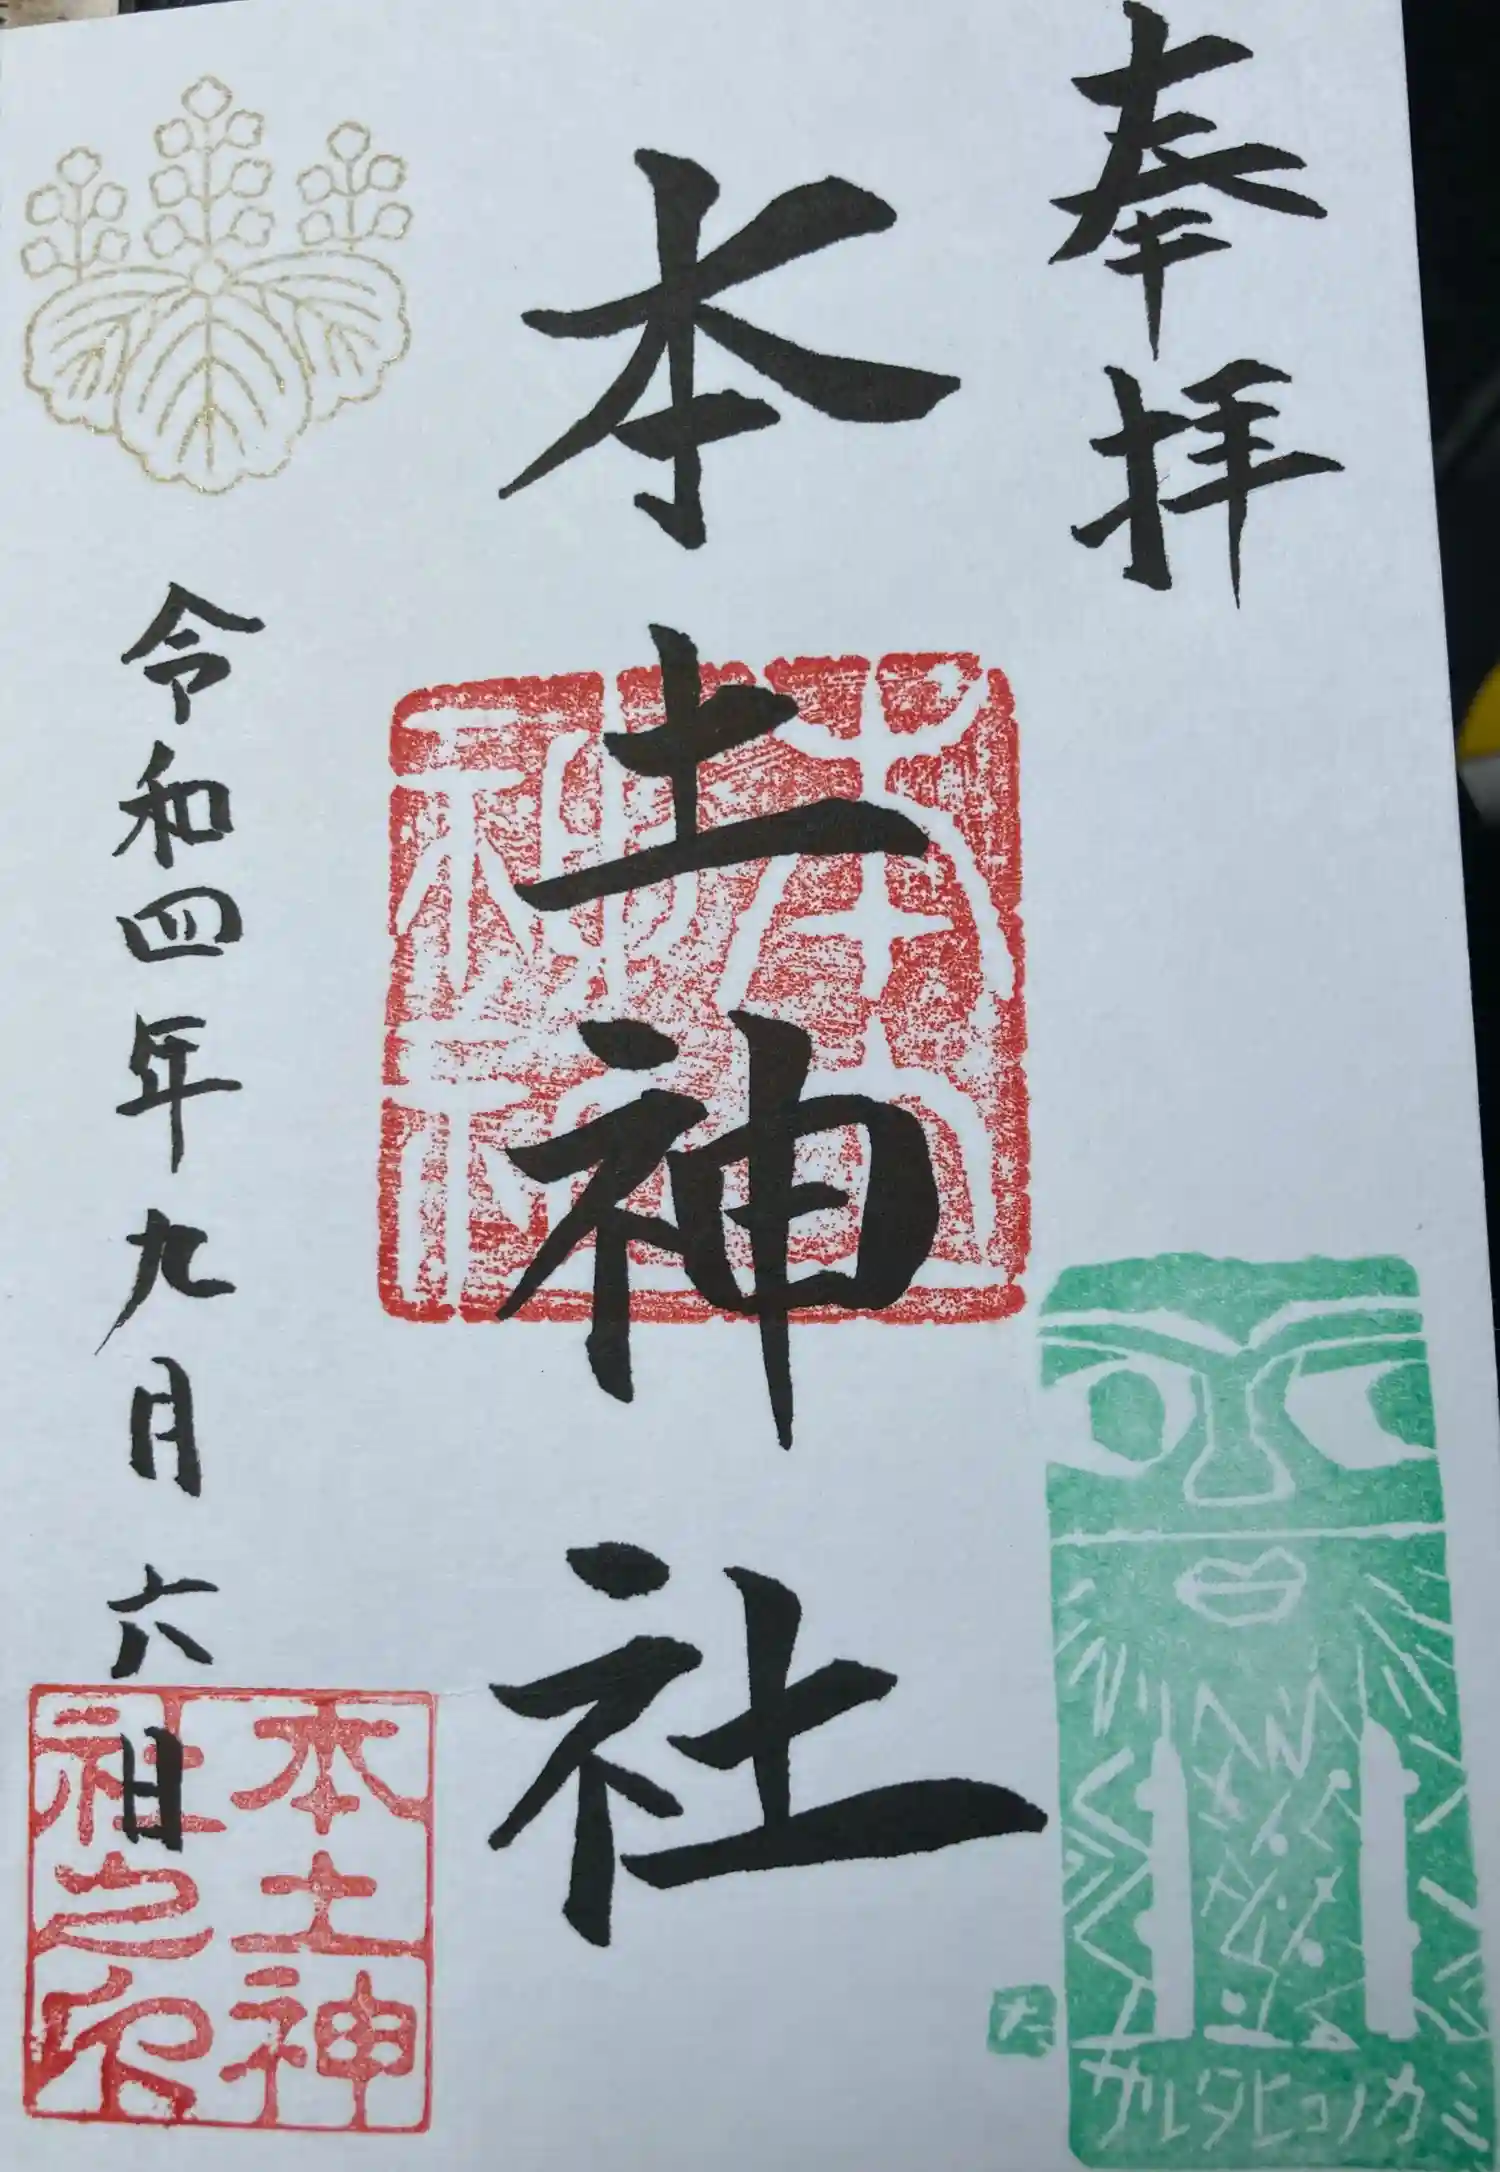 奉拝
本土神社
令和四年九月六日
本土神
社之印
サルタヒコノカミ